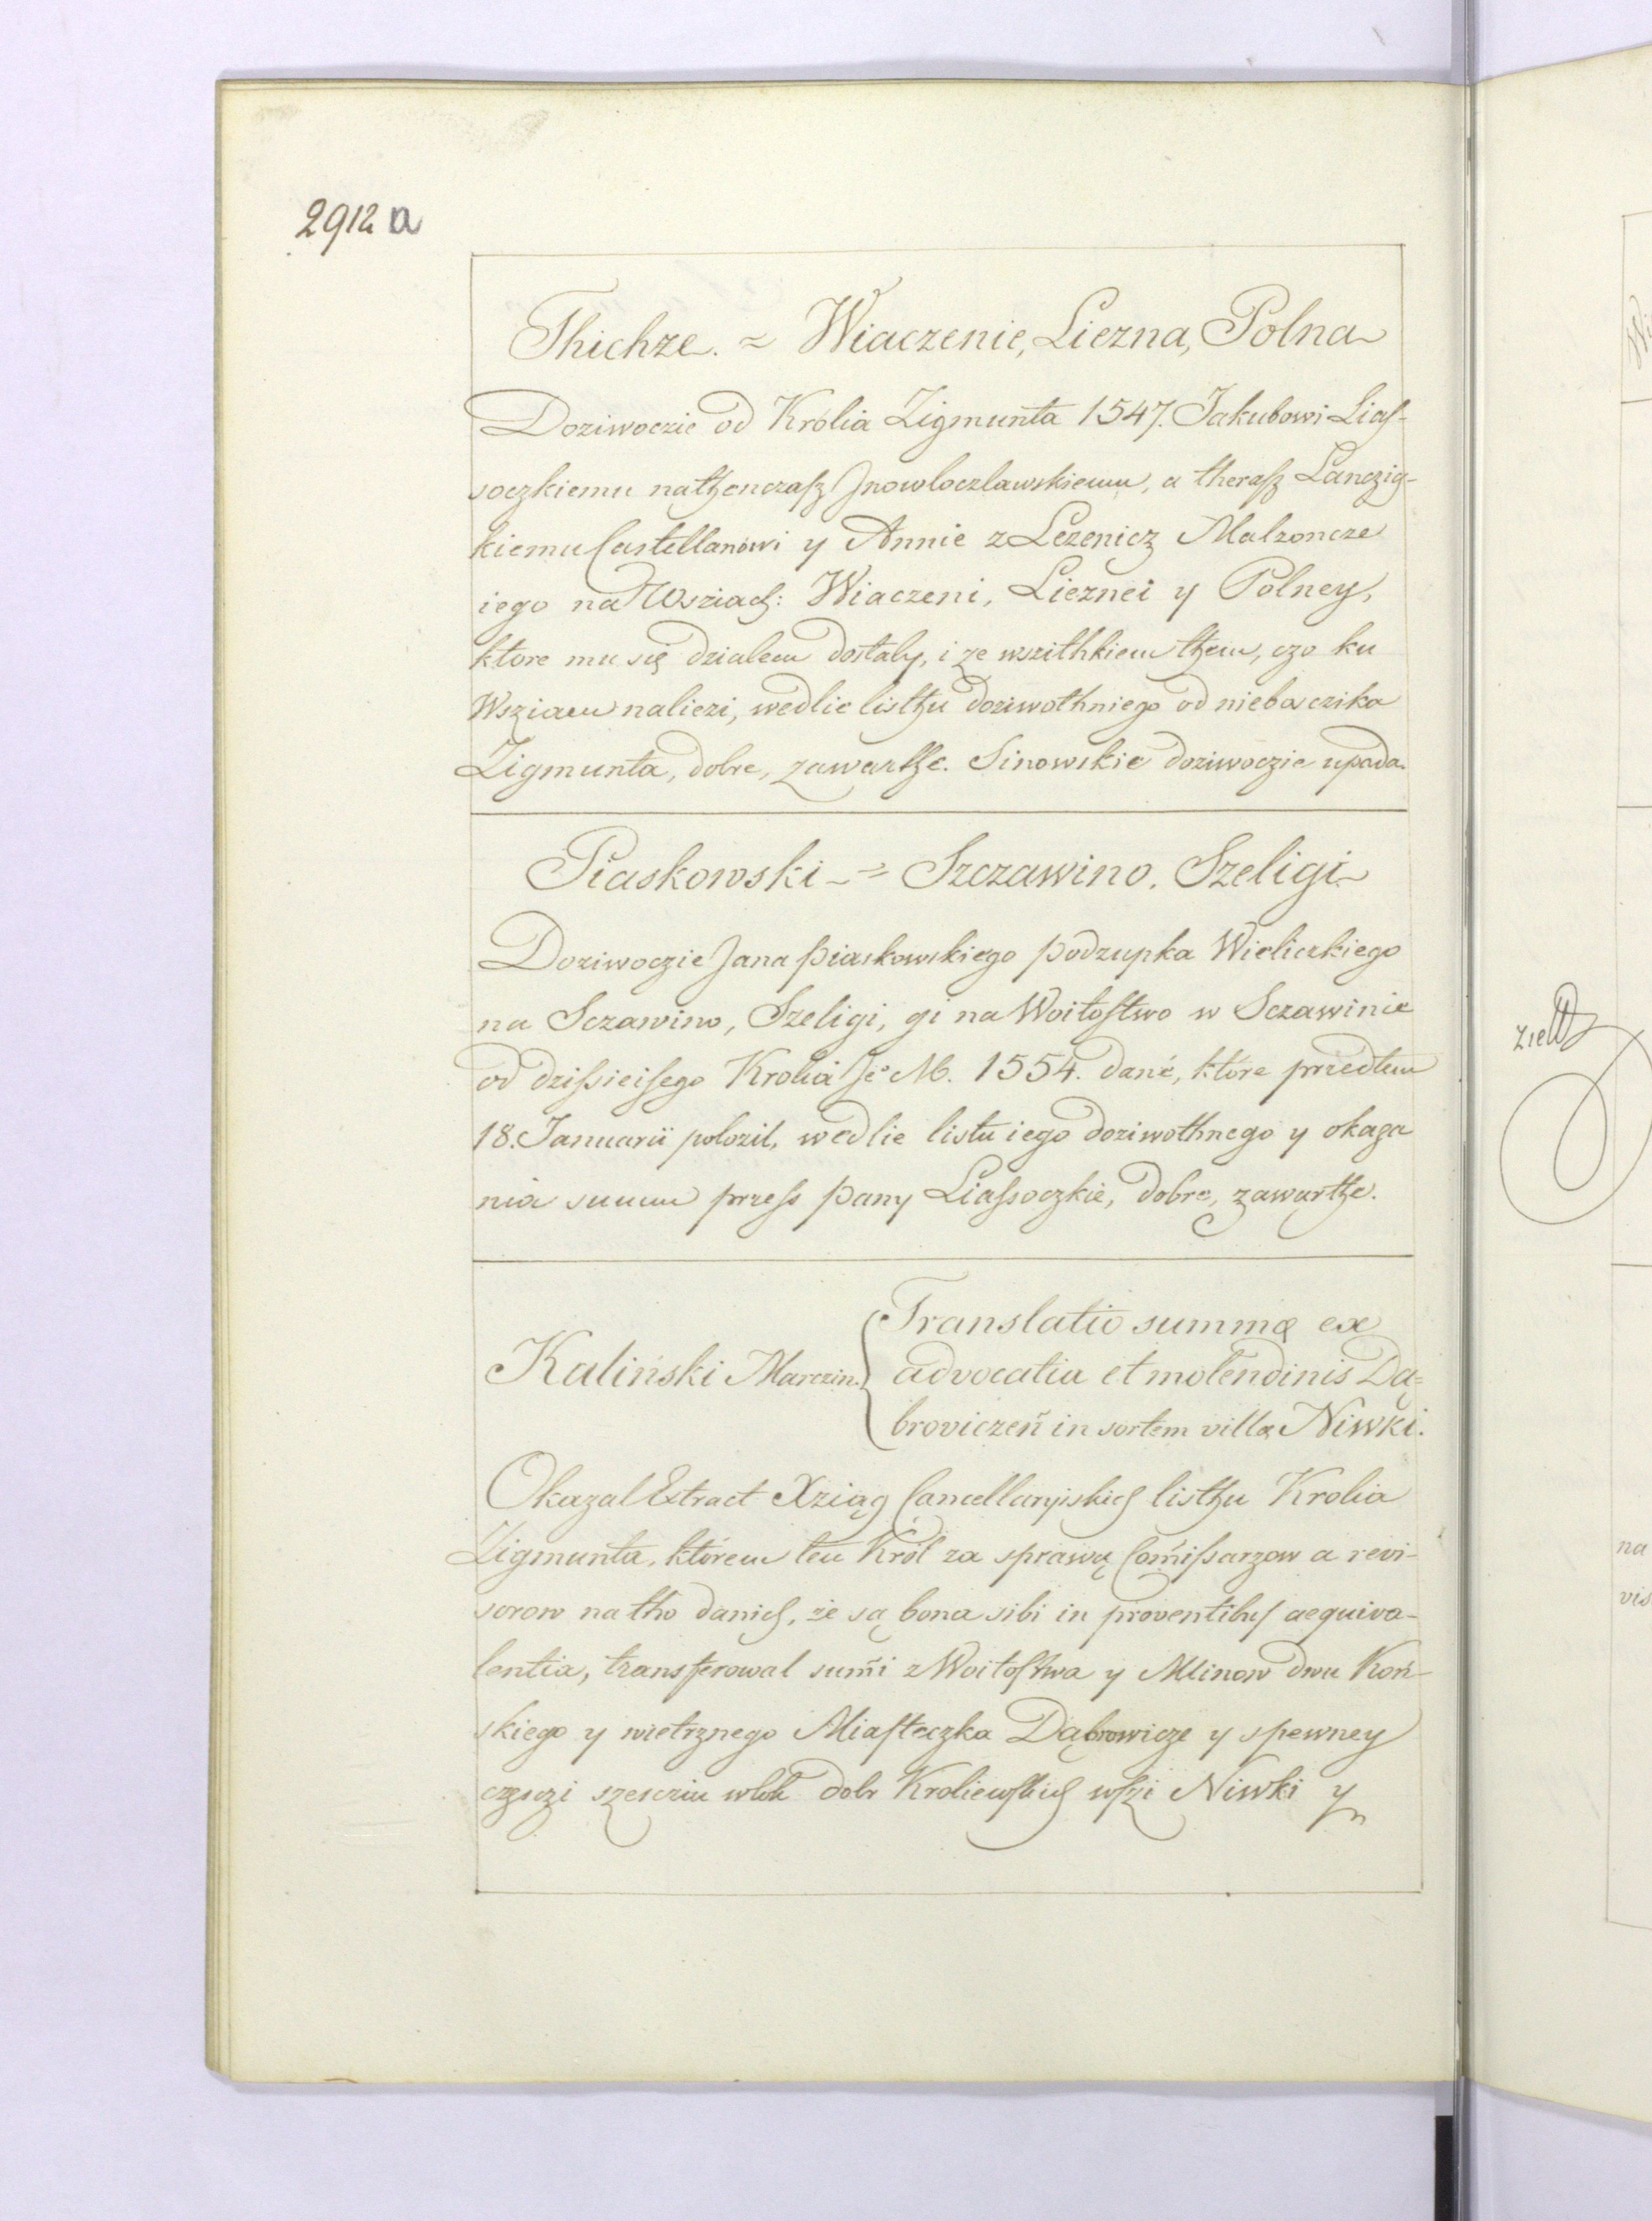 2912 a
Thichze. = Wiaczenie, Liezna, Polna
Doziwoczie od Krolia Zigmunta 1547. Jakubowi Lias-
soczkiemu nathenczasz Jnowloczlawskiemu, a therasz Lanczig-
kiemu Castellanowi y Annie z Lezenicz Malzoncze
iego na Wsziach: Wiaczeni, Lieznei y Polney,
ktore mu się dzialem dostaly, i ze wszithkiem them, czo ku
Wsziam naliezi, wedlie listhu doziwothniego od niebasczika
Zigmunta, dobre, zawarthe. Sinowskie doziwoczie upada.
Piaskowski = Szczawino. Szeligi
Doziwoczie Jana Piaskowskiego podzupka Wieliczkiego
na Sczawino, Szeligi, gi na Woitostwo w Sczawinie
od dzissieisego Krolia Je° M. 1554. dané, ktore przedtem
18. Januarii polozil, wedlie listu iego doziwothnego y okaza
nia summ przess pany Liassoczkie, dobre, zawarthe.
Kaliński Marczin. Translatio summæ ex
advocatia et molendinis Dą=
broviczeń in sortem villæ Niwki.
Okazal Extract Xziąg Cancellaryiskich listhu Krolia
Zigmunta, którem ten Król za sprawą Com̃issarzow a revi-
sorow na tho danich, że są bona sibi in proventibus aequiva-
lentia, transferowal sum̃i z Woitostwa y Mlinow dwu Koń-
skiego y wietrznego Miasteczka Dąbrowicze y s pewney
czesczi szesciu wlok dobr Kroliewskich wszi Niwki y